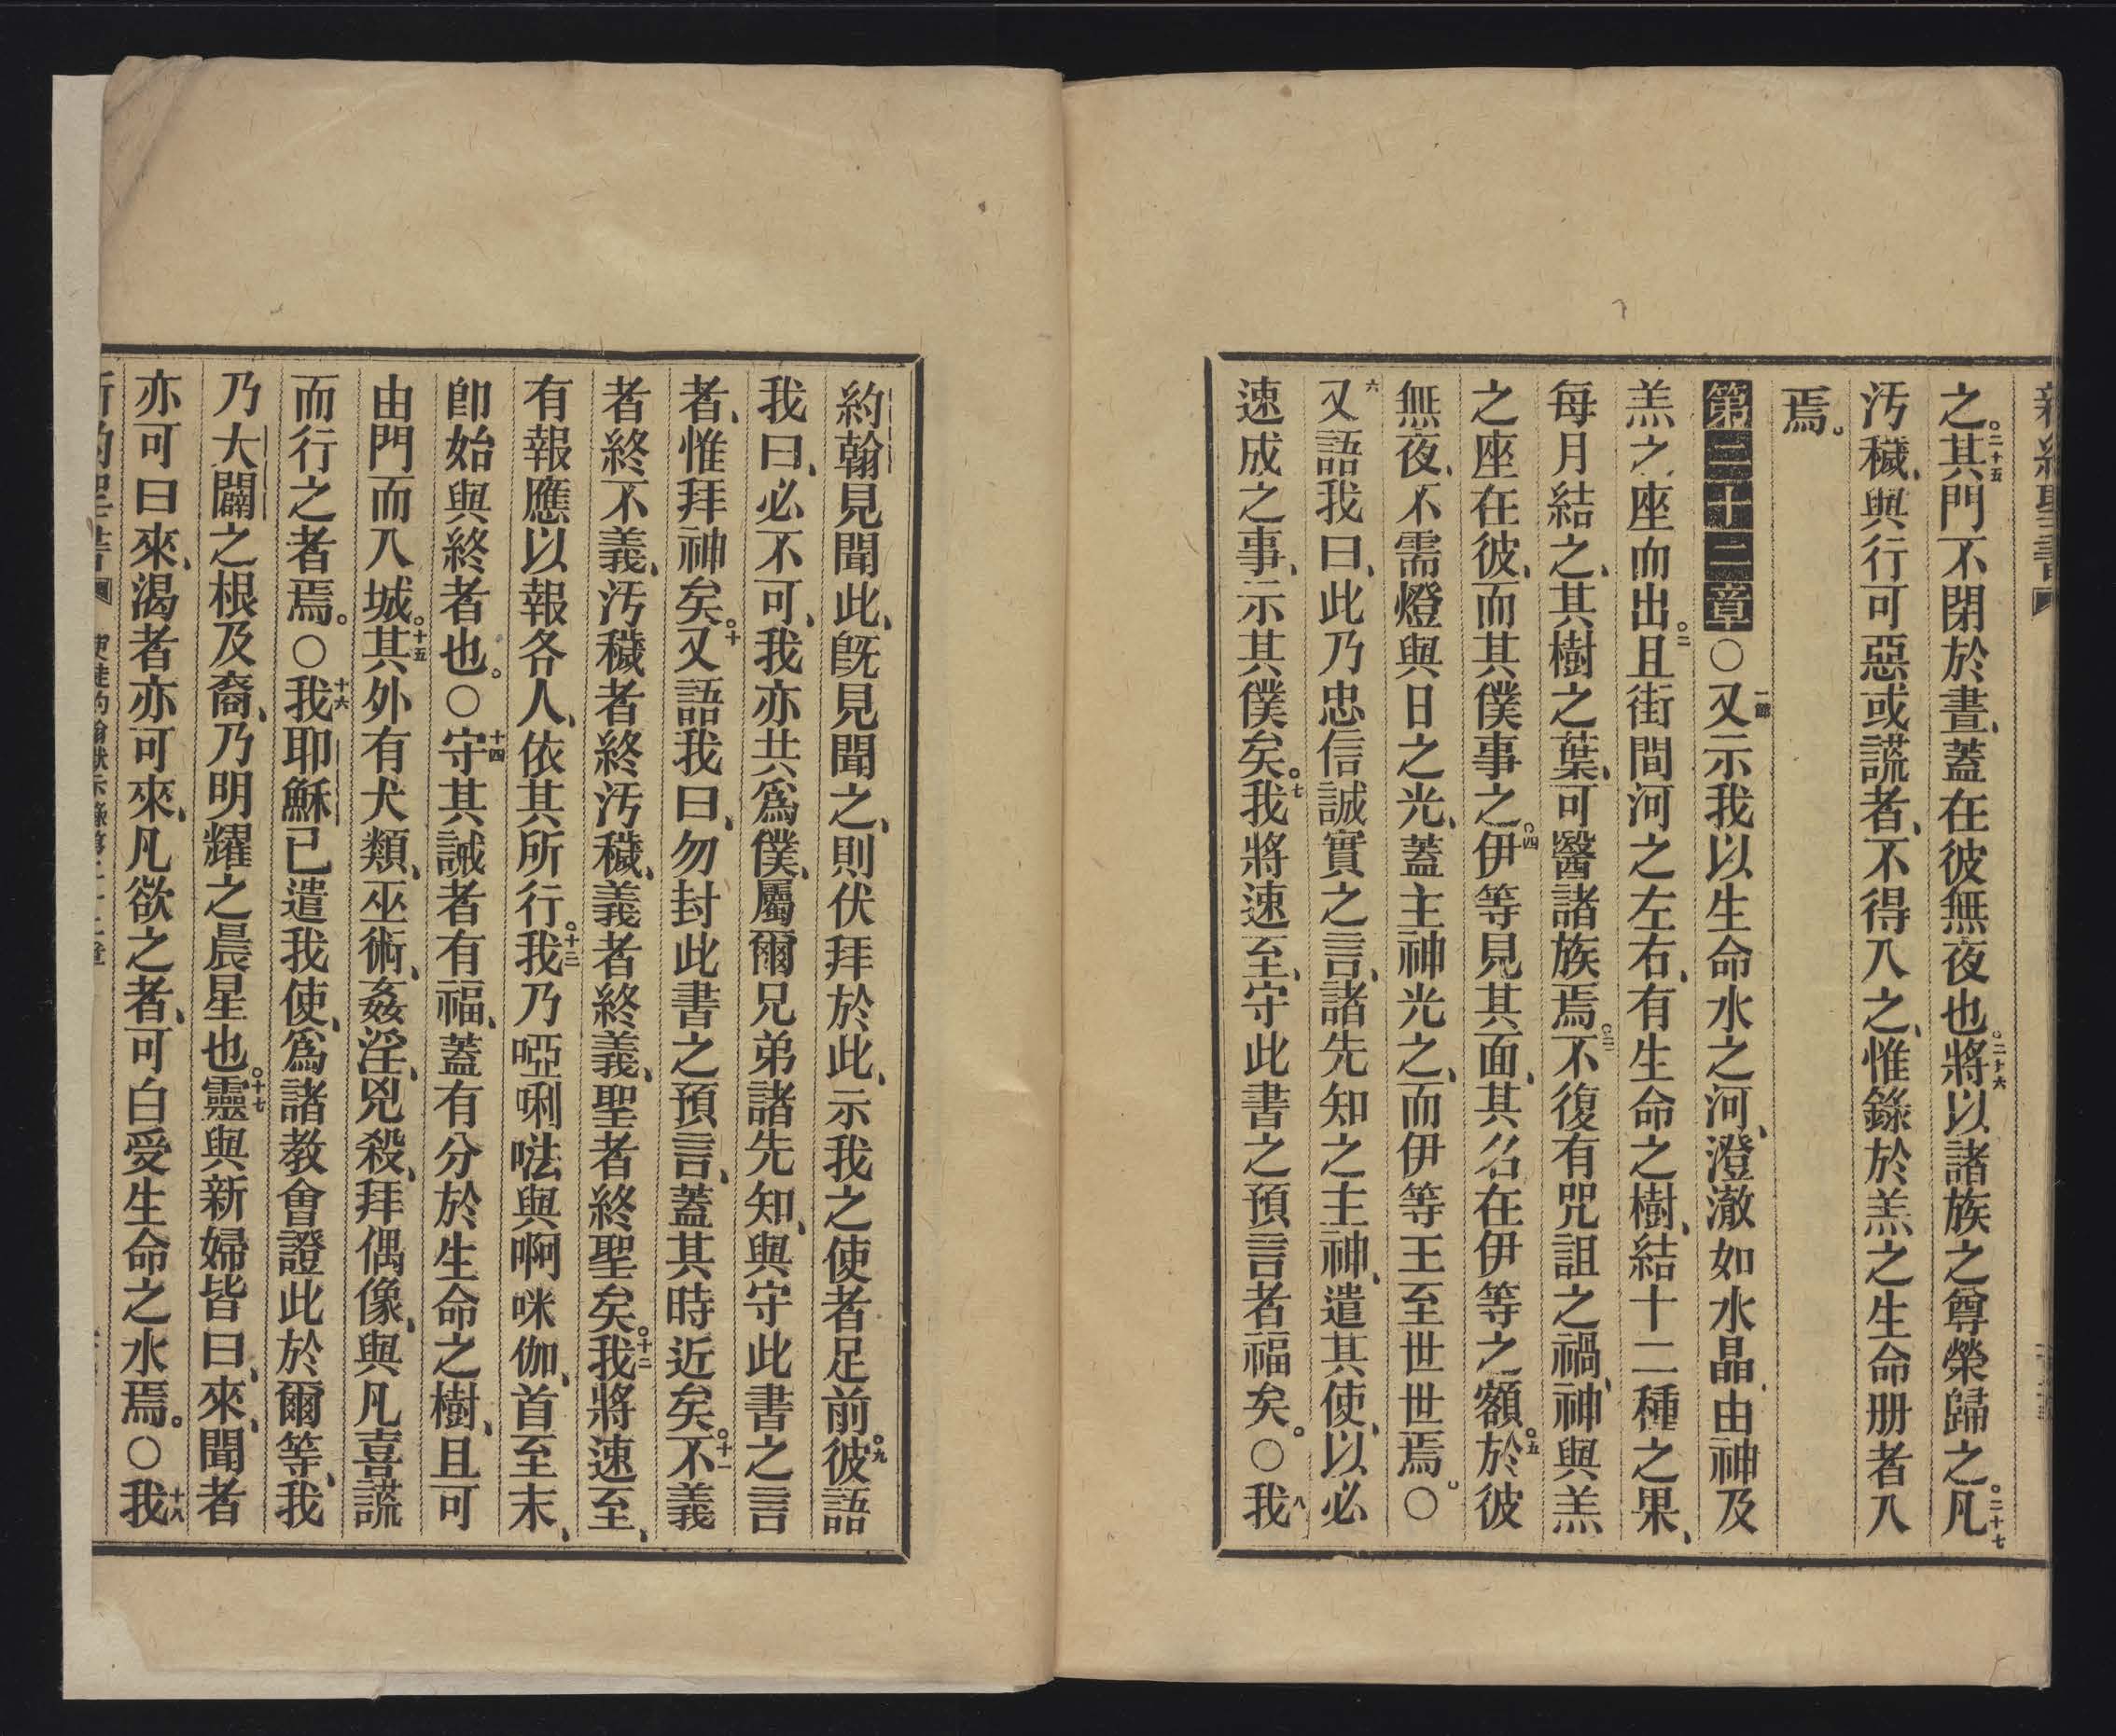 之。二十五其門不閉於晝、蓋在彼無夜也。二十六將以諸族之尊榮歸之。二十七凡
汚穢、與行可惡或謊者、不得入之、惟錄於羔之生命册者入
焉。
第二十二章○一節又示我以生命水之河、澄澈如水晶、由神及
羔之座而出。二且街間河之左右、有生命之樹、結十二種之果、
每月結之、其樹之葉、可醫諸族焉。三不復有咒詛之禍、神與羔
之座在彼、而其僕事之。四伊等見其面、其名在伊等之額。五於彼
無夜、不需燈與日之光、蓋主神光之、而伊等王至世世焉。○
六又語我曰、此乃忠信誠實之言、諸先知之主神、遣其使、以必
速成之事、示其僕矣。七我將速至、守此書之預言者福矣。○八我
約翰見聞此、旣見聞之、則伏拜於此、示我之使者足前。九彼語
我曰、必不可、我亦共爲僕、屬爾兄弟諸先知、與守此書之言
者、惟拜神矣。十又語我曰、勿封此書之預言、蓋其時近矣。十一不義
者終不義、汚穢者終汚穢、義者終義、聖者終聖矣。十二我將速至、
有報應以報各人、依其所行。十三我乃啞唎𠵽與啊咪伽、首至末、
卽始與終者也。○十四守其誡者有福、蓋有分於生命之樹、且可
由門而入城。十五其外有犬類、巫術、姦淫、兇殺、拜偶像、與凡喜謊
而行之者焉。○十六我耶穌已遣我使、爲諸教會證此於爾等、我
乃大闢之根及裔、乃明耀之晨星也。十七靈與新婦皆曰、來、聞者
亦可曰來、渴者亦可來、凡欲之者、可白受生命之水焉。○十八我